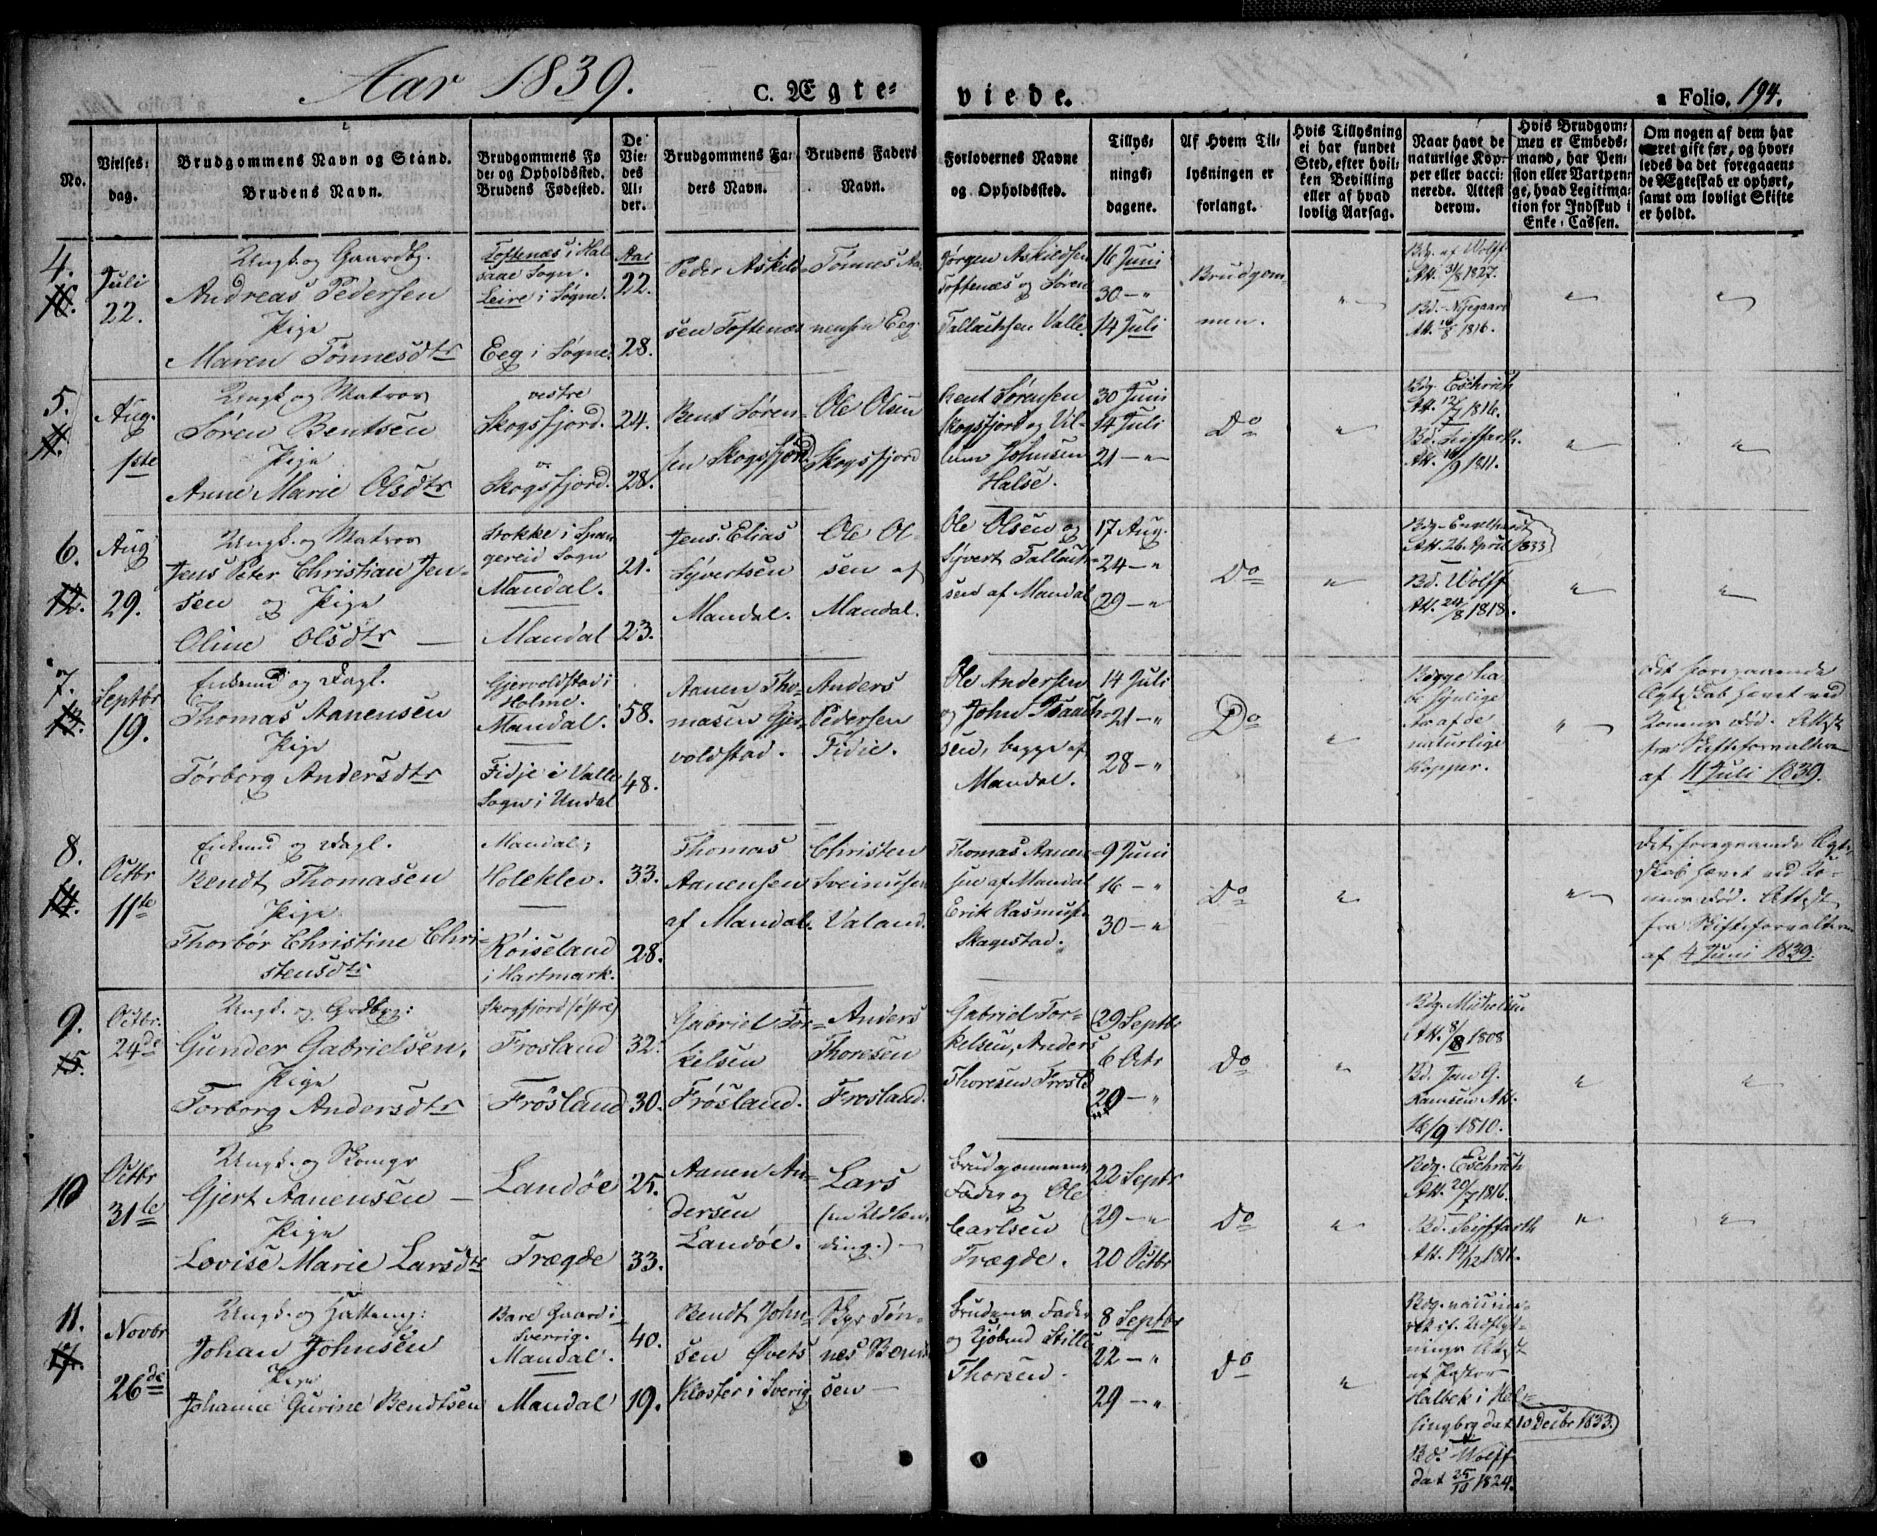 Aar 1839.
C. Ægte-
viede.
a Folio. 194.
No.
Vielses-
dag.
Brudgommens Navn og Stand.
Brudens Navn.
Brudgommens Fø
de- og Opholdssted.
Brudens Fødested.
De
Vie-
des
Al-
der.
Brudgommens Fa-
ders Navn.
Brudens Faders
Navn.
Forlovernes Navne
og Opholdssted.
Tillys-
nings-
dagene.
Af Hvem Til-
lysningen er
forlangt.
Hvis Tillysning
ei har fundet
Sted, efter hvil-
ken Bevilling
eller af hvad
lovlig Aarsag.
Naar havt de
naturlige Kop-
per eller vacci-
nerede. Attest
derom.
Hvis Brudgom-
men er Embeds-
mand, har Pen-
sion eller Vartpen-
ge, hvad Legitima-
tion for Indskud i
Enke-Cassen.
Om nogen af dem har
været gift før, og hvor-
ledes da det foregaaen-
de Ægteskab er ophørt,
samt om lovligt Skifte
er holdt.
4.
Juli
22.
Ungk. og Gaardbr.
Andreas Pedersen
Pige
Maren Tønnesdtr
Toftenæs i Hal-
saae Sogn.
Leire i Søgne.
Eeg i Søgne.
Aar
22.
28.
Peder Askild-
sen Toftenæs
Tønnes Aa-
nensen Eeg.
Jørgen Askildsen
Toftenæs og Søren
Tallachsen Valle.
16 Juni
30 — "
14 Juli
Brudgom-
men.
"
Bdg. af Wolff
Att. 31/8 1827.
Bd. Nyegaard
Att. 8 1816.
"
"
5.
11.
Aug.
1ste
Ungk. og Matros
Søren Bentsen
Pige
Anne Marie Olsdtr
vestre
Skogsfjord.
Skogsfjord.
24.
28.
Bent Søren-
sen Skogsfjord
Ole Olsen
Skogsfjord
Bent Sørensen
Skogsfjord og Vil-
lum Johnsen
Halse.
30 Juni
14 Juli
21 — "
Do
"
Bdg. Eschrich
Att. 12/7 1816.
Bd. Seiffarth.
Att. 9 1811.
"
"
6.
12.
Aug
29.
Ungk. og Matros
Jens Peter Christian Jen-
sen og Pige
Oline Olsdtr —
Stokke i Span-
gereid Sogn
Mandal.
Mandal
21.
23.
Jens Elias
Syvertsen
Mandal.
Ole Ol-
sen af
Mandal.
Ole Olsen og
Syvert Tallach-
sen af Mandal
17 Aug.
24 — "
29 — "
Do
"
Bdg. Engelhardt
Att. 26. April 1833
Bd. Wolff
Att. 24/8 1818.
"
"
7.
Septbr
19.
Enkmd og Dagl.
Thomas Aanensen
Pige
Tørborg Andersdtr
Gjervoldstad i
Holme.
Mandal.
Fidje i Valle
Sogn i Undal
58.
48.
Aanen Tho-
masen Gjer-
voldstad.
Anders
Pedersen
Fidie.
Ole Andersen
og John Isaach-
sen, begge af
Mandal.
14 Juli
21 — "
28 — "
Do
"
Begge ha-
be synlige
Ar af de
naturlige
Kopper.
"
Det foregaaende
Ægteskab hævet ved
Konens Død. Attest
fra Skifteforvalteren
af 11 Juli 1839.
8.
14.
Octbr
11te
Enkmd og Dagl.
Bendt Thomasen
Pige
Thorbor Christine Chri-
stensdtr
Mandal,
Holeklev.
Røiseland
i Hartmark.
33.
28.
Thomas
Aanensen
af Mandal.
Christen
Sveinusen
Valand.
Thomas Aanen-
sen af Mandal
Erik Rasmus-
Skagestad.
9 Juni
16 — "
30 — "
Do
"
"
Det foregaaende Ægte-
skab hævet ved Ko-
nens Død. Attest
fra Skifteforvalteren
af 4 Juni 1839.
9.
15.
Octbr.
24de
Ungk. og Grdbr:
Gunder Gabrielsen.
Pige
Torborg Andersdtr
Skogfjord (østre)
Frosland
Frøsland
32.
30.
Gabriel Tor-
kelsen
Frøsland.
Anders
Thoresen
Frosland.
Gabriel Tor-
kelsen, Anders
Thoresen Frosld
29 Septbr
6 Octr
20 — "
Do
"
Bdg. Michelsen
Att. 8/8 1808
Bd. Jon G.
Ramsen Att.
/9 1810.
"
"
10
Octbr
31te
Ungk. og
Gjert Aanensen —
Pige
Lovise Marie Larsdtr
Landøe
Trægde
25.
33.
Aanen An-
dersen
Landøe.
Lars
(en Udlæn-
ding.) —
Brudgommens
Fader og Ole
Carlsen
Trægde.
22 Septbr
29 — "
20 Octbr
Do
"
Bdg. Eschrich
Att. 20/7 1816.
Bd. Seyffarth
Att. /12 1811.
"
"
11.
17.
Novbr
26de
Ungk. og Hattemg:
Johan Johnsen
Pige
Johanne Gurine Bendtsen
Bare Gaard i
Sverrig.
Mandal.
Mandal
40.
19.
Bendt John-
sen Øvets
Kloster i Sverig
Byr Tøn-
nes Bendt-
sen —
Brudens Fader
og Kjøbmd Stille
Thorsen.
8 Septbr
22 — "
29 — "
Do
"
Bdg. vaccine-
ret if. Udflyt-
nings Attest
af Pastor
Halbek i Hel-
singbrg dat 10 Decbr 1833.
Bd. Wolff
dat 25/10 1824.